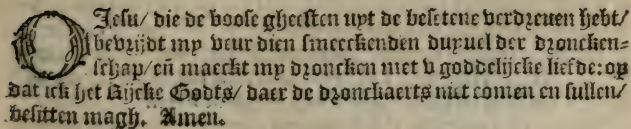 O Jesu/ die de boose gheesten uyt de besetene verdreven hebt/
bevrijdt my veur dien smeerkenden duyvel der dronckensch-
schap/ eñ maeckt my droncken met u goddelijcke liefde: op
dat ick het Rijcke Godts/ daer de dronckaerts niet comen en sullen/
besitten magh. Amen.